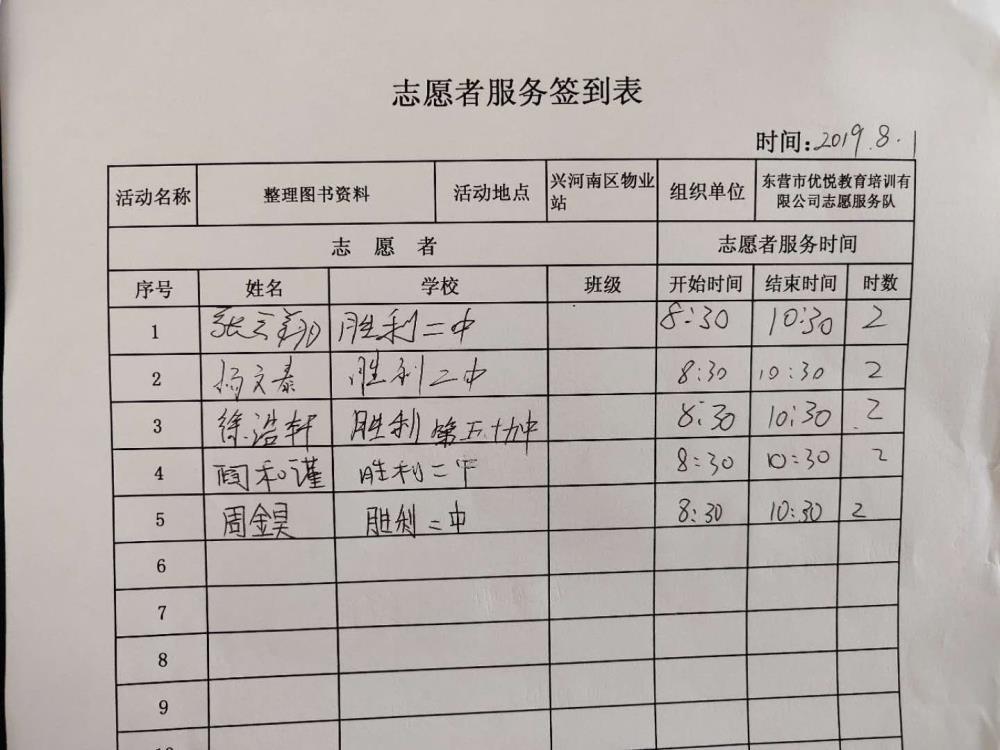 志愿者服务签到表
时间:2019.8.1
活动名称 整理图书资料 活动地点 兴河南区物业站 组织单位 东营市优悦教育培训有限公司志愿服务队
志愿者 志愿者服务时间
序号 姓名 学校 班级 开始时间 结束时间 时数
1 张云翔 胜利二中 8:30 10:30 2
2 杨文泰 胜利二中 8:30 10:30 2
3 徐浩轩 胜利第五十九中 8:30 10:30 2
4 和谨 胜利二中 8:30 10:30 2
5 周金昊 胜利二中 8:30 10:30 2
6
7
8
9
10